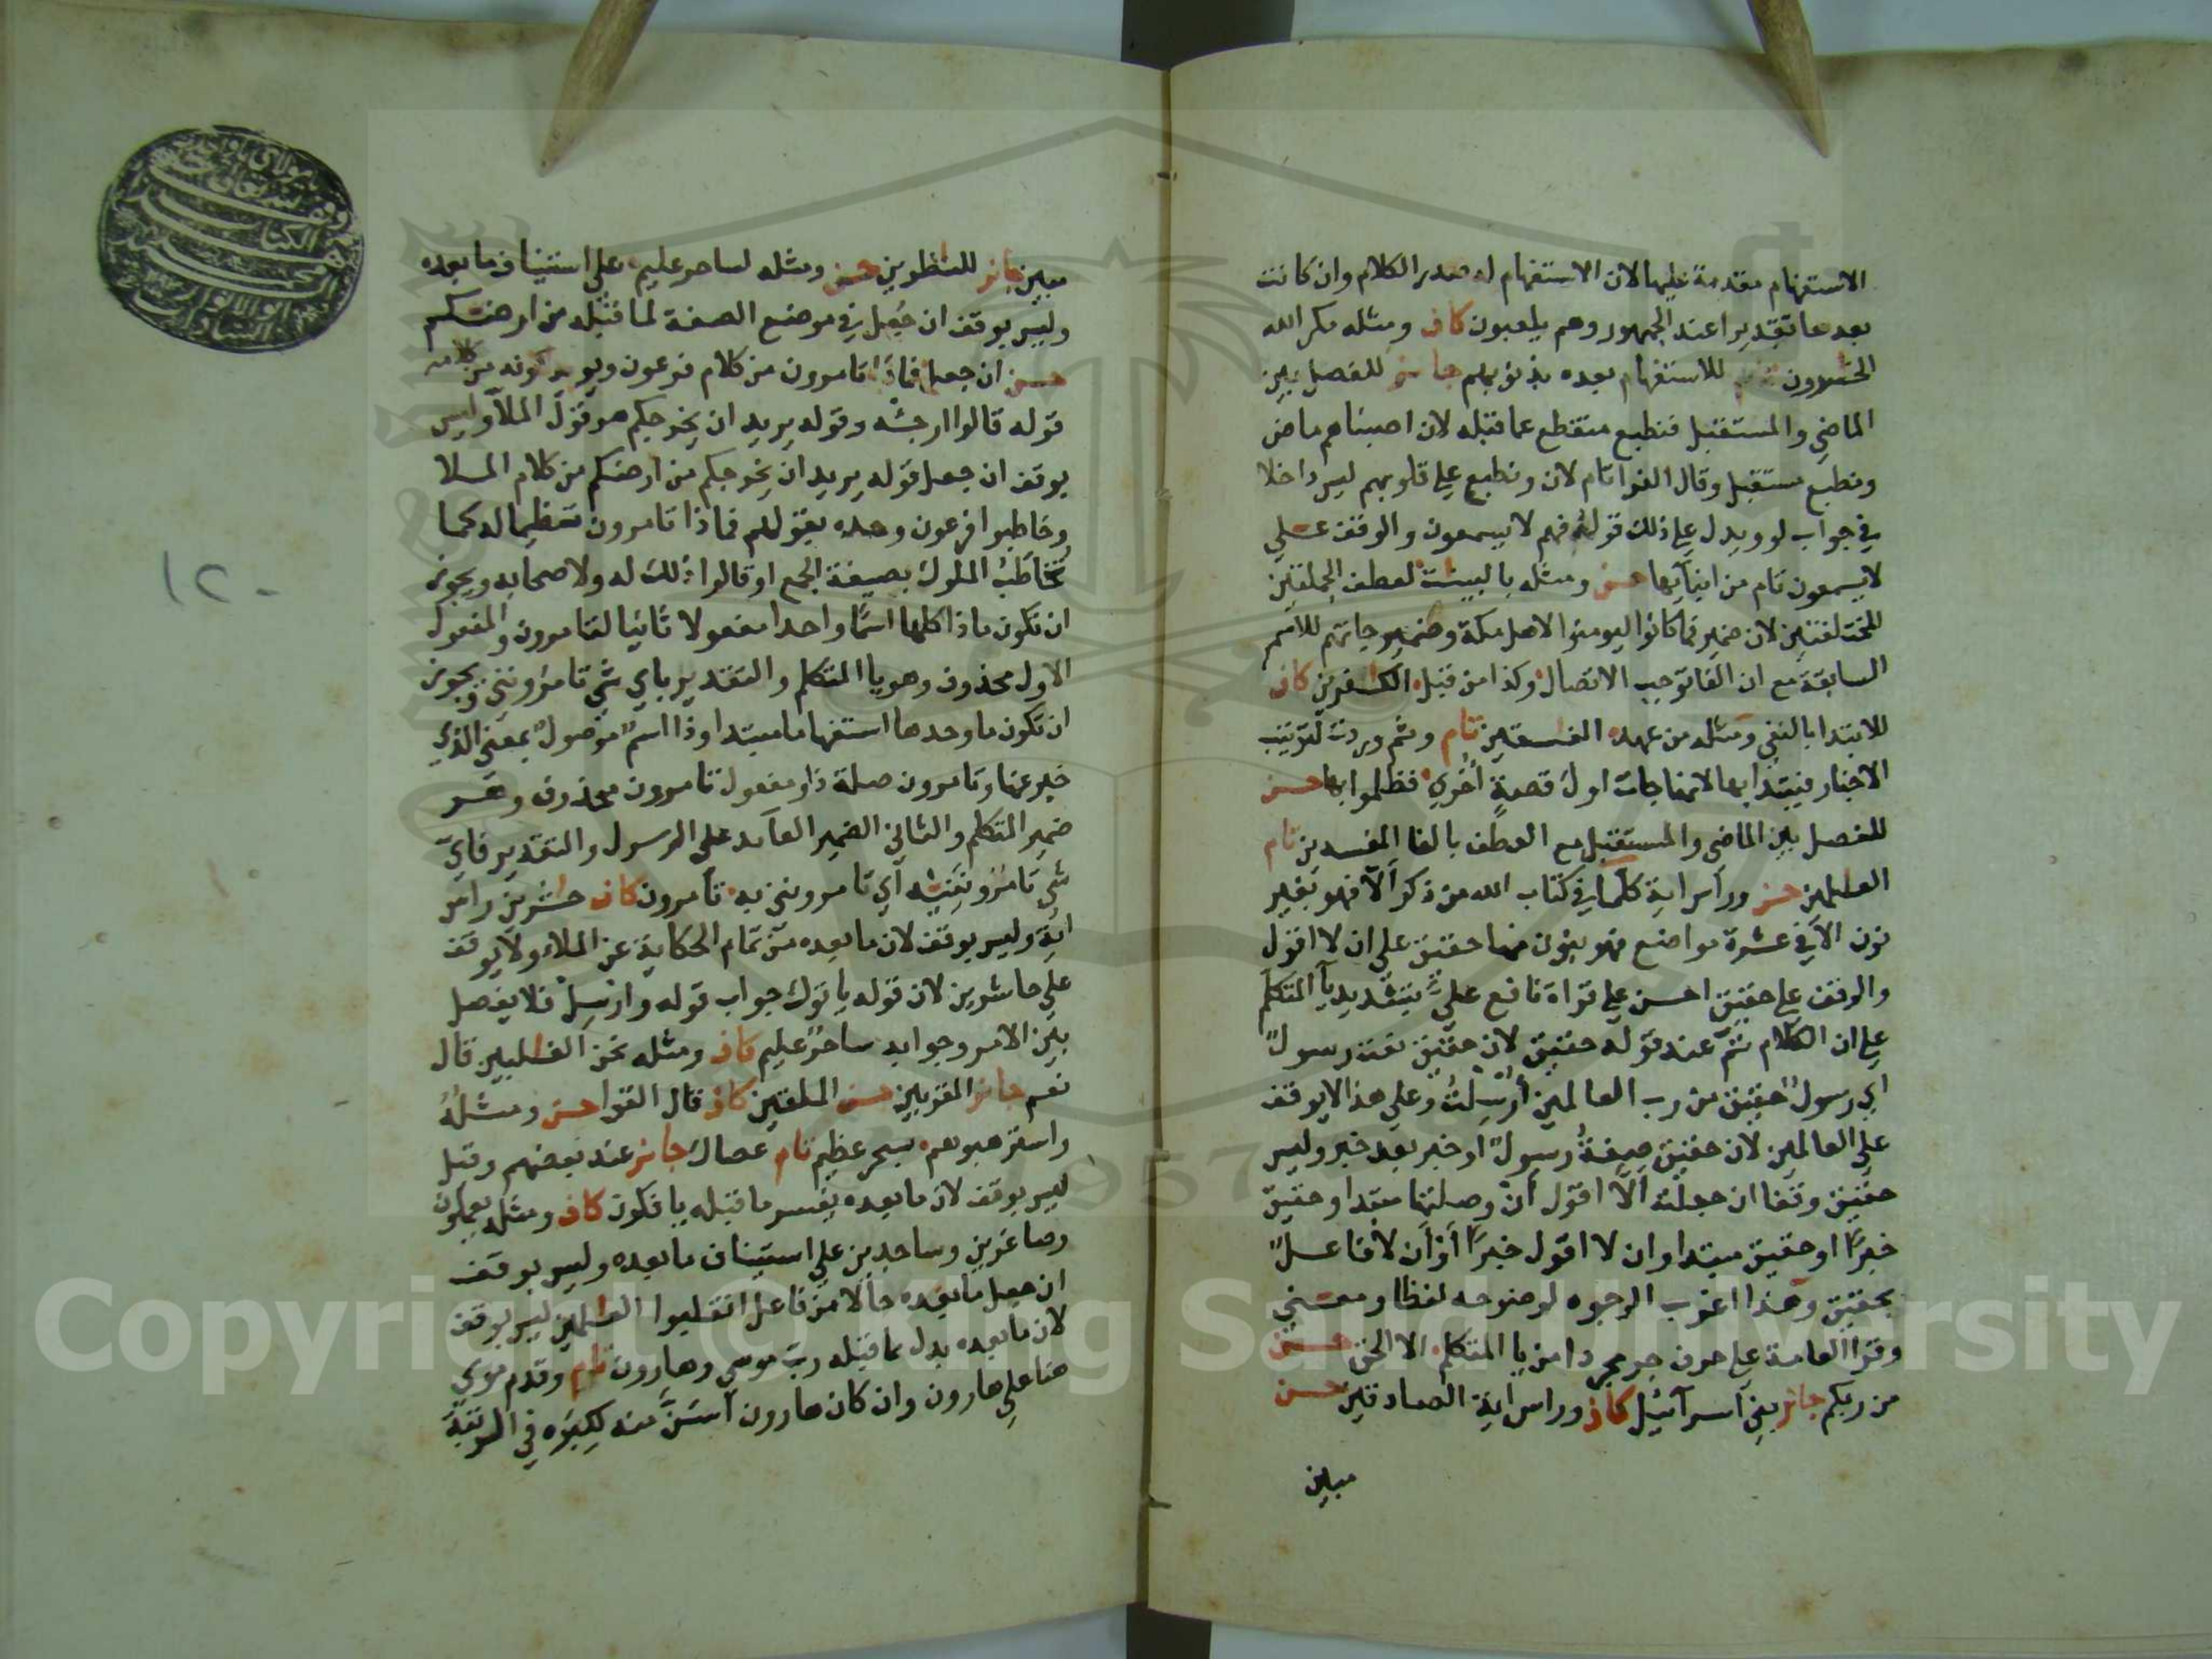 الاستفهام مقدمة عليها لان الاستفهام له صدر الكلام وان كانت
بعدها تقديرا عند الجمهور وهم يلعبون كاف ومثله مكر الله
الخسرون للاستفهام بعده بذنوبهم جائز للفصل بين
الماضي والمستقبل فنطبع منقطع عما قبله لان اصبناهم ماض
ونطبع مستقبل وقال الفرا تام لان ونطبع على قلوبهم ليس داخلا
في جواب لو ويدل على ذلك قوله فهم لا يسمعون والوقف على
لا يسمعون تام من انبآيها حسن ومثله بالبينت لعطف الجملتين
المختلفتين لان ضمير فما كانوا ليومنوا لاهل مكة وضمير جاتهم للامم
السابقة مع ان الفا توجب الاتصال وكذا من قبل الكفرين كاف
للابتدا بالنفي ومثله من عهد الفسقين تام وثم وردت لترتيب
الاخبار فيبتدا بها لانها جات اول قصة اخرى فظلموا بها حسن
للفصل بين الماضي والمستقبل مع العطف بالفا المفسدين تام
العلمين حسن وراس اية كلما في كتاب الله من ذكر الا فهو بغير
نون الا في عشرة مواضع فهو بنون منها حقيق على ان لا اقول
والوقف على حقيق احسن على قراة نافع علي بتشديد يآ المتكلم
على ان الكلام تم عند قوله حقيق لان حقيق نعت رسول
اي رسول حقيق من رب العالمين ارسلت وعلى هذا لا يوقف
على العالمين لان حقيق صفة رسول او خبر بعد خبر وليس
حقيق وقفا ان جعلت الا اقول ان وصلتها مبتدا وحقيق
خبرا او حقيق مبتدا وان لا اقول خبرا او ان لا فاعل
بحقيق وهذا اعرب الوجوه لوضوحه لفظا ومعنى
وقرا العامة على حرف جر مجردا من يا المتكلم الا الحق حسن
من ربكم جائز بني آسرآئيل كاف وراس اية الصادقين حسن
مبين
مبين جائز للنظرين حسن ومثله لساحر عليم على استيناف ما بعده
وليس بوقف ان جعل في موضع الصفة لما قبله من ارضكم
حسن ان جعل فماذا تامرون من كلام فرعون ويويد كونه من كلامه
قوله قالوا ارجئه وقوله يريد ان يخرجكم هو قول الملآ وليس
بوقف ان جعل قوله يريد ان يخرجكم من ارضكم من كلام الملا
وخاطبوا فرعون وحده بقولهم فماذا تامرون تعظيما له كما
تخاطب الملوك بصيغة الجمع او قالوا ذلك له ولاصحابه ويجوز
ان تكون ماذا كلها اسما واحدا مفعولا ثانيا لتامرون والمفعول
الاول محذوف وهو يا المتكلم والتقدير باي شي تامرونني ويجوز
ان تكون ما وحدها استفهاما مبتدا وذا اسم موصول بمعنى الذي
خبر عنها وتامرون صلة ذا ومفعول تامرون محذوف وهو
ضمير المتكلم والثاني الضمير العآيد على الموصول والتقدير فاي
شي تامرونيه اي تامرونني به تآمرون كاف حشرين راس
اية وليس بوقف لان ما بعده من تمام الحكاية عن الملاء ولا يوقف
على حاشرين لان قوله ياتوك جواب قوله وارسل فلا يفصل
بين الامر وجوابه ساحر عليم كاف ومثله نحن الغلبين قال
نعم جائز المقربين حسن الملقين كاف قال القوا حسن ومثله
واسترهبوهم بسحر عظيم تام عصاك جائز عند بعضهم وقيل
ليس بوقف لان ما بعده يفسر ما قبله يافكون كاف ومثله يعملون
وصاغرين وساجدين على استيناف ما بعده وليس بوقف
ان جعل ما بعده حالا من فاعل انقلبوا العلمين ليس بوقف
لان ما بعده بدل مما قبله رب موسى وهارون تام وقدم موسى
هنا على هارون وان كان هارون اسن منه لكبره في الرتبة
١٢٠